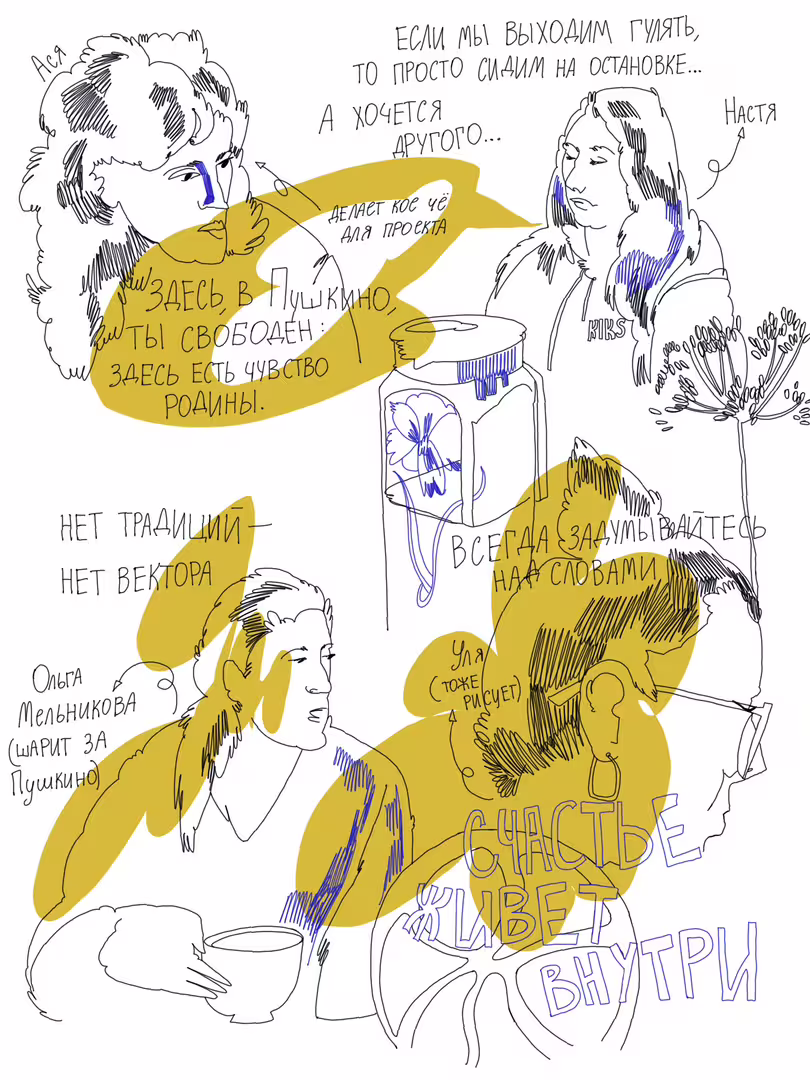 Ася
ЕСЛИ МЫ ВЫХОДИМ ГУЛЯТЬ,
ТО ПРОСТО СИДИМ НА ОСТАНОВКЕ...
А ХОЧЕТСЯ
ДРУГОГО...
НАСТЯ
ДЕЛАЕТ КОЕ ЧЁ
ДЛЯ ПРОЕКТА
ЗДЕСЬ, В ПУШКИНО,
ТЫ СВОБОДЕН:
ЗДЕСЬ ЕСТЬ ЧУВСТВО
РОДИНЫ.
KIKS
НЕТ ТРАДИЦИЙ —
НЕТ ВЕКТОРА
ВСЕГДА ЗАДУМЫВАЙТЕСЬ
НАД СЛОВАМИ
ОЛЬГА
МЕЛЬНИКОВА
(ШАРИТ ЗА
ПУШКИНО)
УЛЯ
(ТОЖЕ
РИСУЕТ)
СЧАСТЬЕ
ЖИВЕТ
ВНУТРИ